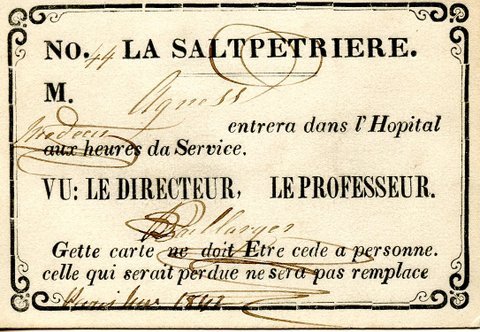 NO. 44 LA SALTPETRIERE.
M. Agness
entrera dans l'Hopital
aux heures da Service.
VU: LE DIRECTEUR, LE PROFESSEUR.
Gette carte ne doit Etre cede a personne.
celle qui serait perdue ne sera pas remplace